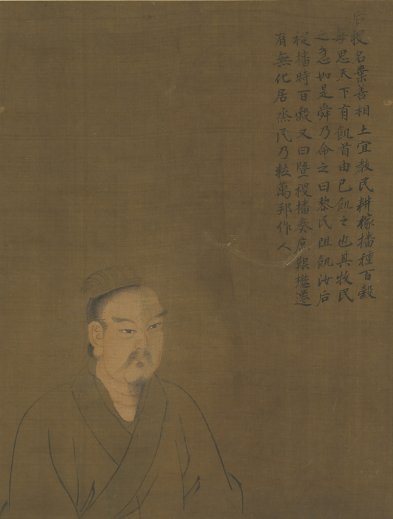 稷名棄善相土宜教民耕稼播種百穀
每思天下有飢者由己飢之也其牧民
之急如是舜乃命之曰黎民阻飢汝后
稷播時百穀又曰曁稷播奏庶艱懋遷
有無化居烝民乃粒萬邦作乂